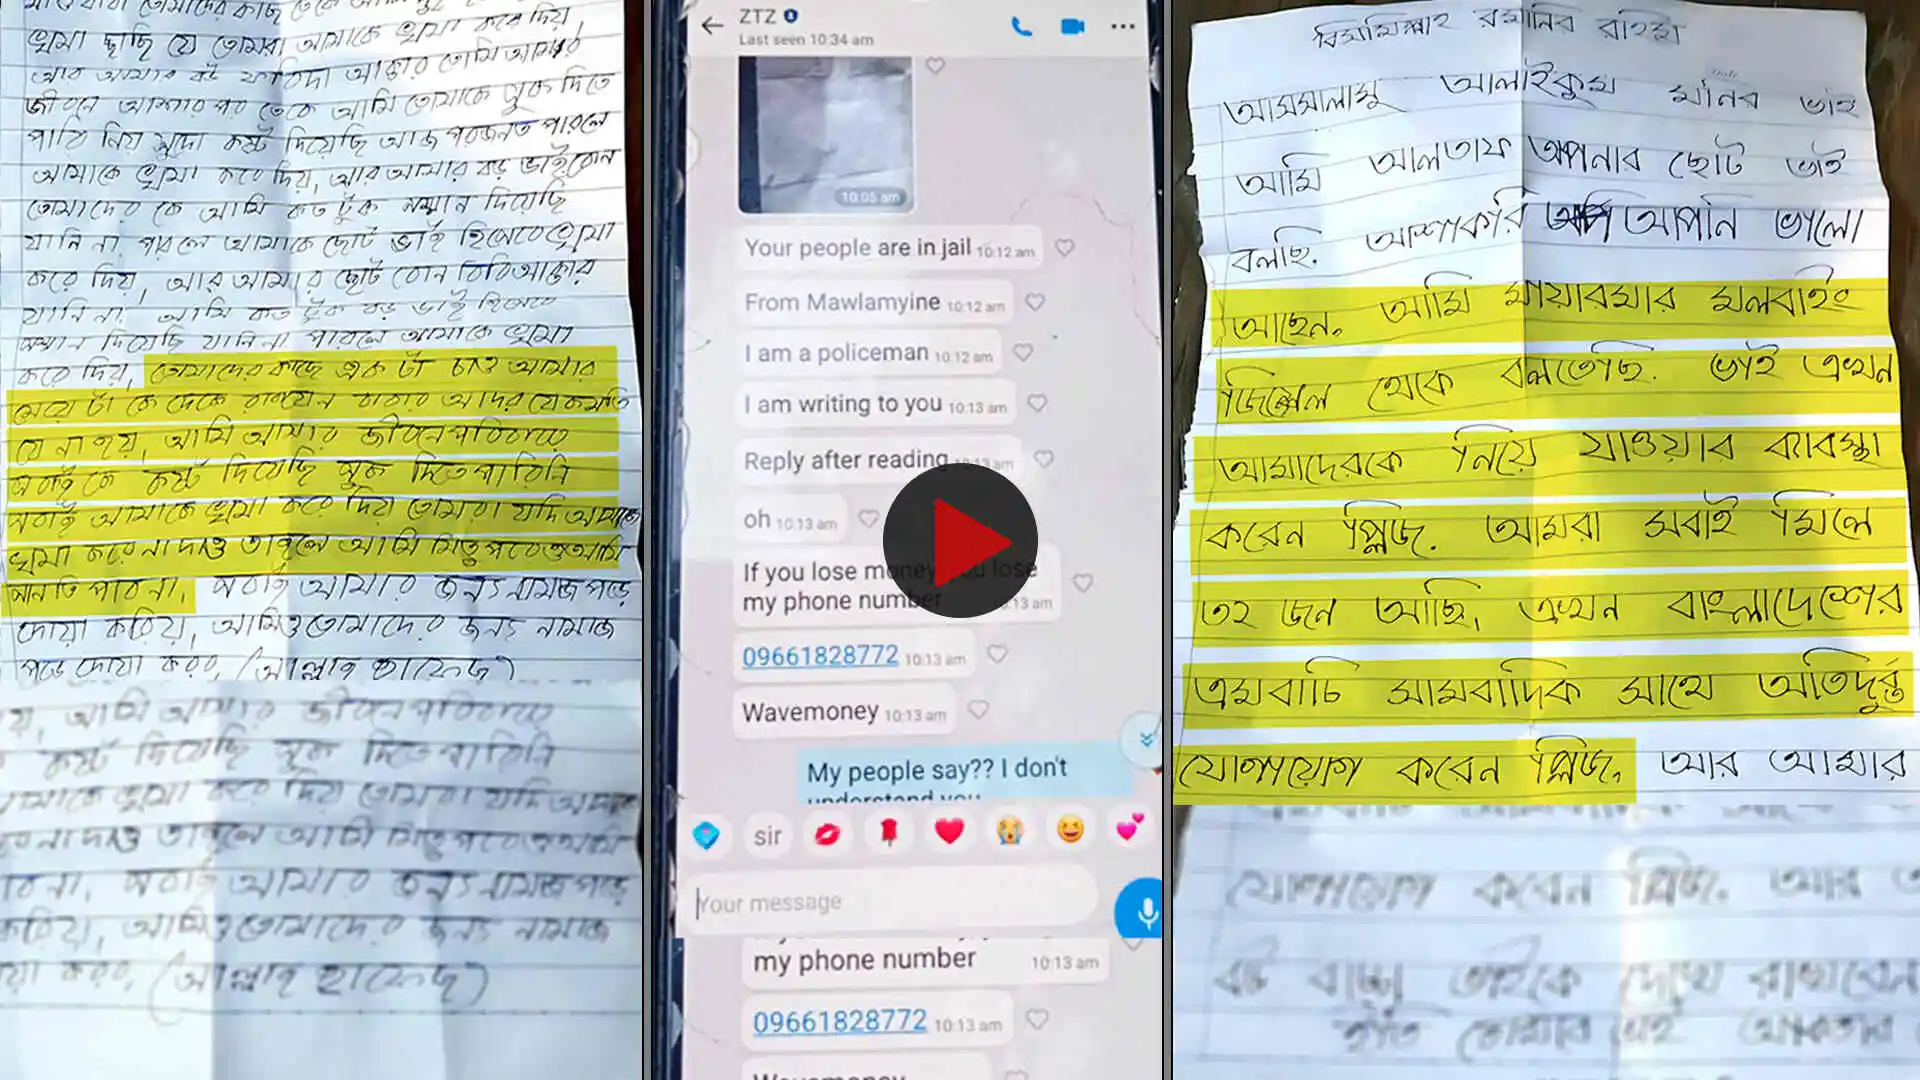 ভাই বোন তোমাদের কাছ তেকে আমি
খমা ছাছি যে তোমরা আমাকে খমা করে দিয়,
আর আমার বউ ফরিদা আক্তার তোমি আমার
জীবনে আশার পর তেকে আমি তোমাকে সুক দিতে
পারি নিয় সুদো কষ্ট দিয়েছি আজ পরজনত পারলে
আমাকে খমা করে দিয়, আর আমার বড় ভাই বোন
তোমাদের কে আমি কত টুক সম্মান দিয়েছি
যানি না, পারলে আমাকে ছোট ভাই হিসেবে খমা
করে দিয়, আর আমার ছোট বোন বিবি আক্তার
যানি না, আমি কত টুক বড় ভাই হিসেবে
সম্মান দিয়েছি যানি না পারলে আমাকে খমা
করে দিয়, তোমাদের কাছে এক টা চাও আমার
মেয়ে টা কে দেকে রাখবেন বাবার আদর যে কমতি
যে না হয়, আমি আমার জীবনে পরিবারে
সবাই কে কষ্ট দিয়েছি সুক দিতে পারিনি
সবাই আমাকে খমা করে দিয় তোমরা যদি আমাকে
খমা করে না দাও তাহলে আমি মিত্তু পরেও আমি
সানতি পাব না, সবাই আমার জন্য নামাজ পড়ে
দোয়া করিয়, আমিও তোমাদের জন্য নামাজ
পড়ে দোয়া করব, (আল্লাহ হাফেজ)
য়, আমি আমার জীবনে পরিবারে
কষ্ট দিয়েছি সুক দিতে পারিনি
আমাকে খমা করে দিয় তোমরা যদি আমাকে
রে না দাও তাহলে আমি মিত্তু পরেও আমি
াব না, সবাই আমার জন্য নামাজ পড়ে
করিয়, আমিও তোমাদের জন্য নামাজ
য়া করব, (আল্লাহ হাফেজ)
ZTZ
Last seen 10:34 am
10:05 am
Your people are in jail 10:12 am
From Mawlamyine 10:12 am
I am a policeman 10:12 am
I am writing to you 10:13 am
Reply after reading 10:13 am
oh 10:13 am
If you lose money you lose
my phone number 10:13 am
09661828772 10:13 am
Wavemoney 10:13 am
My people say?? I don't
understand you
sir
Your message
my phone number 10:13 am
09661828772 10:13 am
Wavemoney
বিসমিল্লাহ রমানির রাহিম
আসসালামু আলাইকুম মনির ভাই
আমি আলতাফ অপনার ছোট ভাই
বলছি. আশাকরি আপনি ভালো
আছেন. আমি মায়ারমার মলবাইং
জিজ্ঞেল থেকে বলতেছি. ভাই এখন
আমাদেরকে নিয়ে যাওয়ার ব্যাবস্থা
করেন প্লিজ. আমরা সবাই মিলে
৩২ জন আছি, এখন বাংলাদেশের
এমবাচি সামবাদিক সাথে অতিদ্রুত
যোগাযোগ করেন প্লিজ, আর আমার
যোগাযোগ করেন প্লিজ. আর আ
বউ বাচ্চা ভাইকে দেখে রাখবেন
ইতি তোমার ভাই আলতাফ